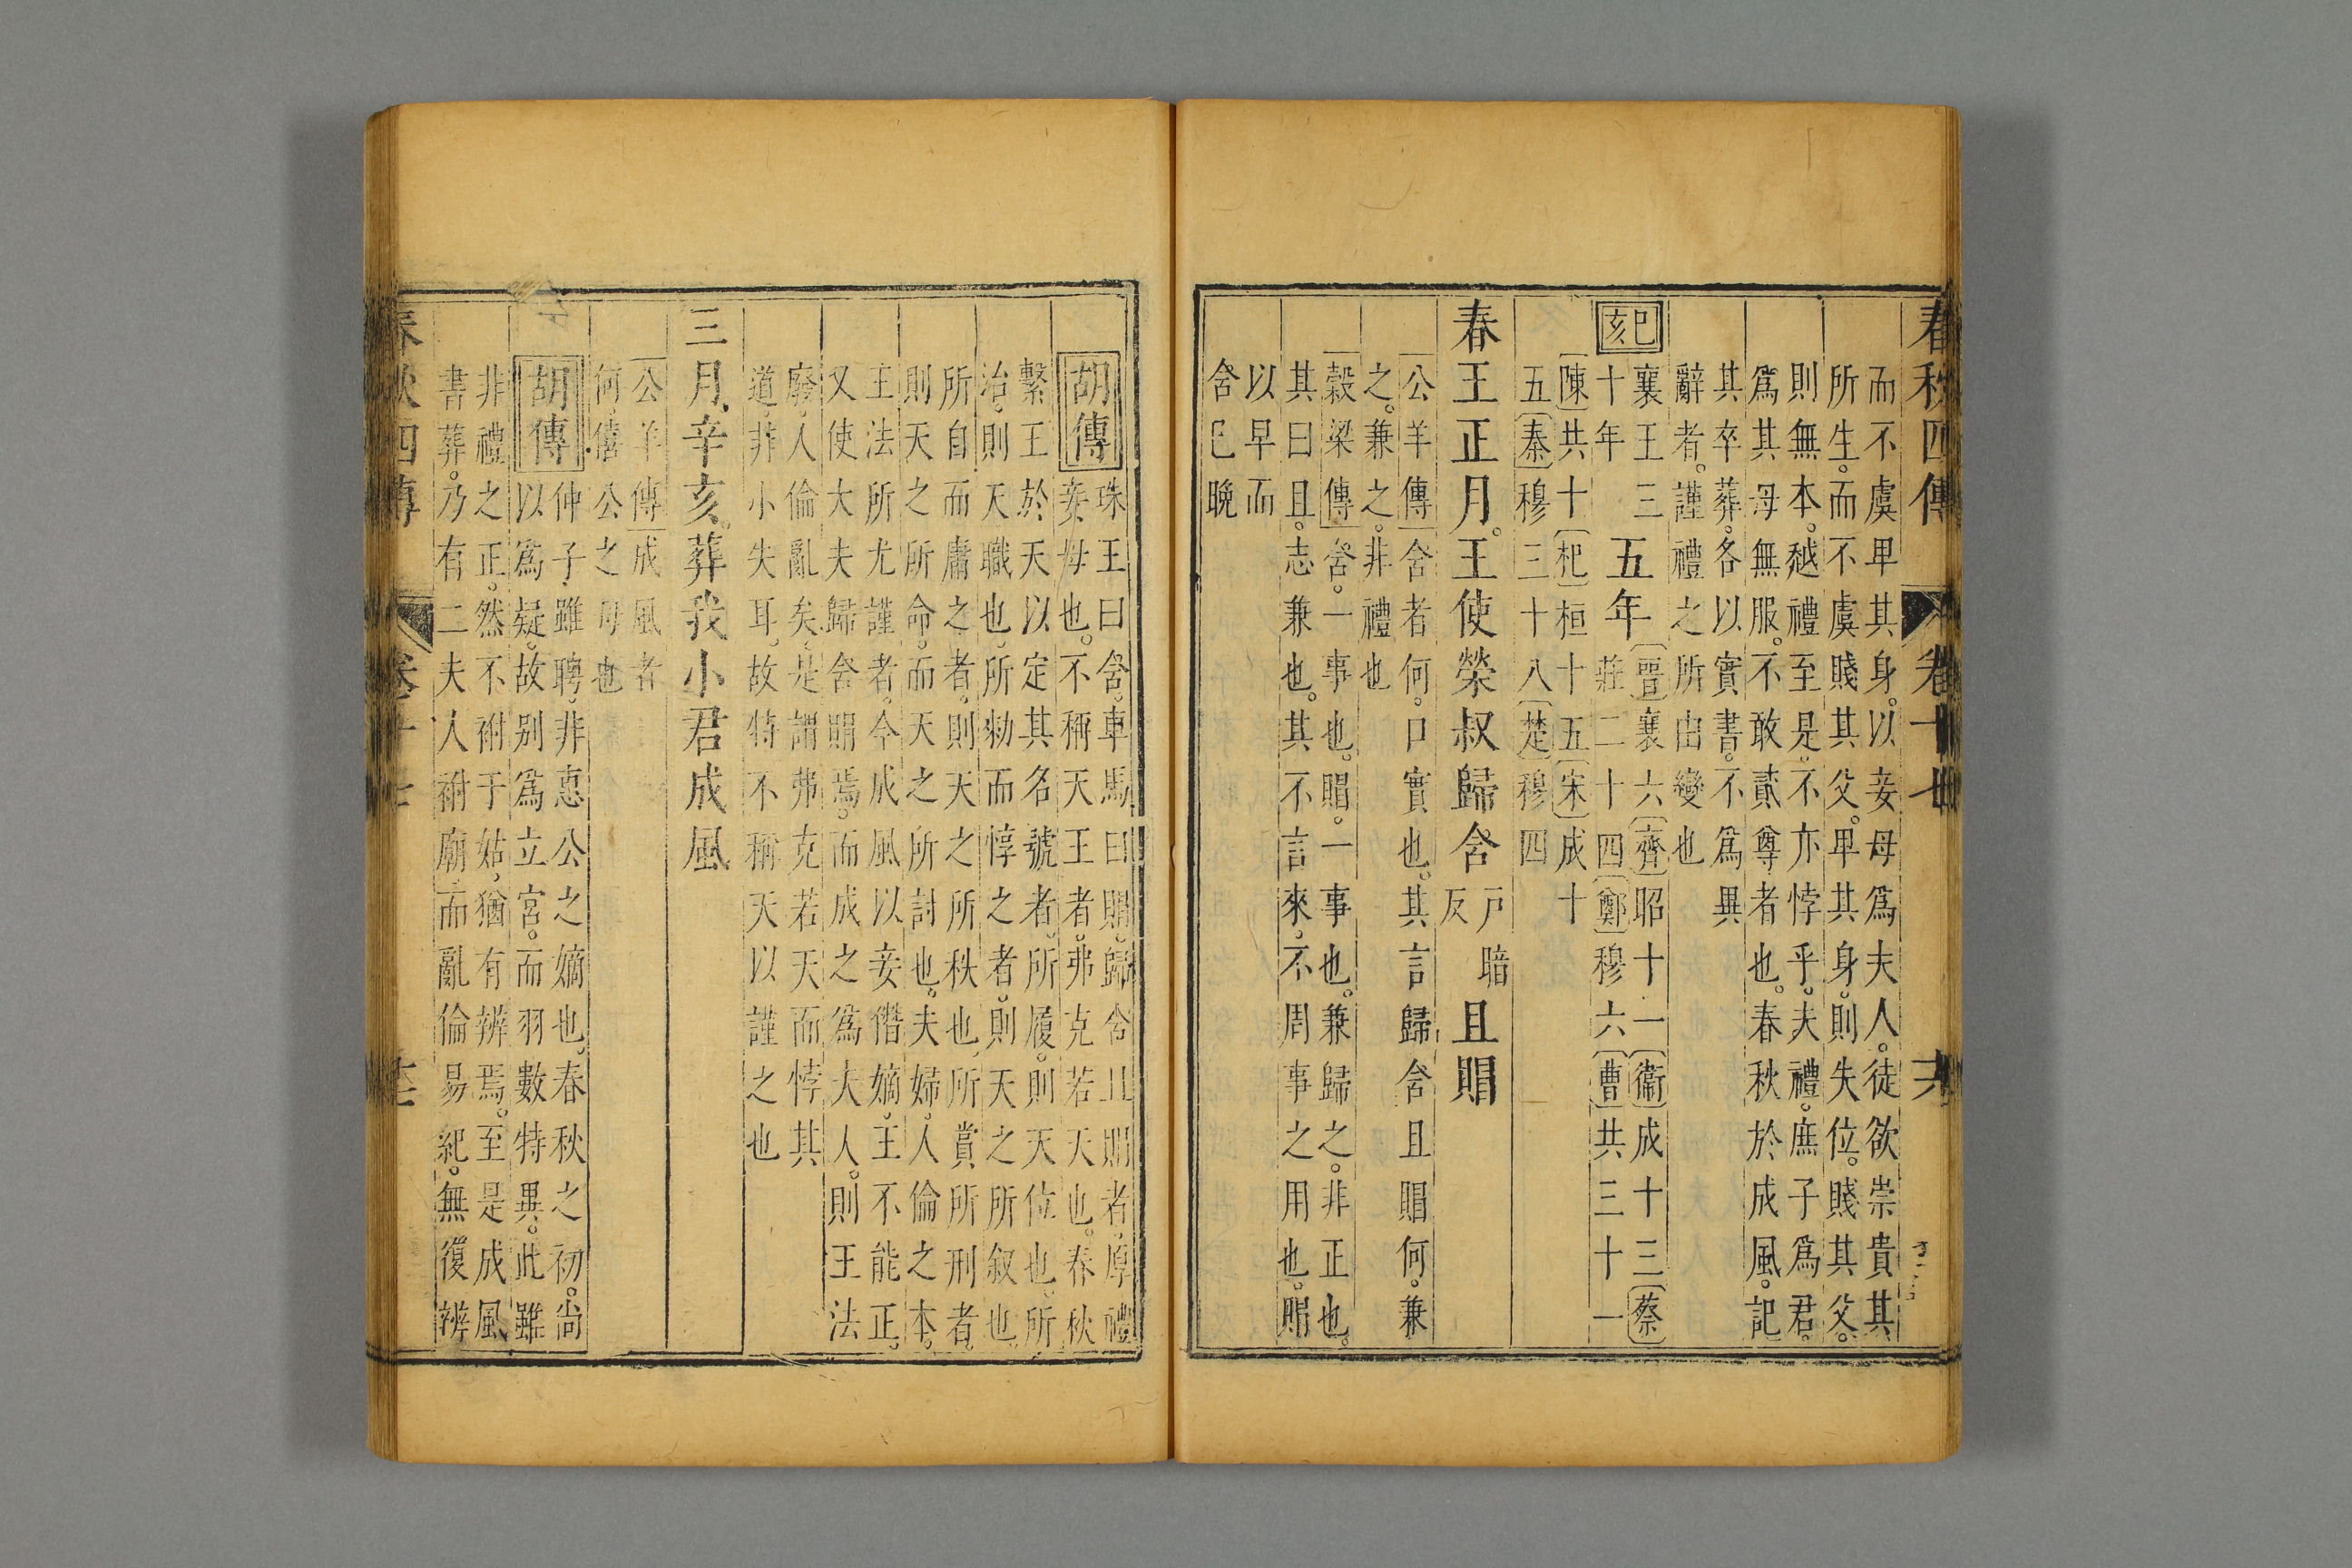 春秋四傳 卷十七 十六
而不虞卑其身。以妾母爲夫人。徒欲崇貴其
所生。而不虞賤其父。卑其身。則失位。賤其父。
則無本。越禮至是。不亦悖乎。夫禮。庶子爲君。
爲其母無服。不敢貳尊者也。春秋於成風。記
其卒葬。各以實書。不爲異
辭者。謹禮之所由變也
己亥
襄王三
十年
五年
晉襄六齊昭十一衞成十三蔡
莊二十四鄭穆六曹共三十一
陳共十杞桓十五宋成十
五秦穆三十八楚穆四
春王正月。王使榮叔歸含戸暗反且賵
公羊傳含者何。口實也。其言歸含且賵何。兼
之。兼之。非禮也
穀梁傳含。一事也。賵。一事也。兼歸之。非正也。
其曰且。志兼也。其不言來。不周事之用也。賵
以早而
含已晚
胡傳
珠玉曰含。車馬曰賵。歸含且賵者。厚禮
妾母也。不稱天王者。弗克若天也。春秋
繫王於天以定其名號者。所履。則天位也。所
治。則天職也。所勑而惇之者。則天之所叙也。
所自而庸之者。則天之所秩也。所賞所刑者。
則天之所命。而天之所討也。夫婦。人倫之本。
王法所尤謹者。今成風以妾僭嫡。王不能正。
又使大夫歸含賵焉。而成之爲夫人。則王法
廢。人倫亂矣。是謂弗克若天而悖其
道。非小失耳。故特不稱天以謹之也
三月。辛亥。葬我小君成風
公羊傳成風者
何。僖公之母也
胡傳
仲子雖聘。非惠公之嫡也。春秋之初。尚
以爲疑。故別爲立宮。而羽數特異。此雖
非禮之正。然不祔于姑。猶有辨焉。至是成風
書葬。乃有二夫人祔廟。而亂倫易紀。無復辨
春秋四傳